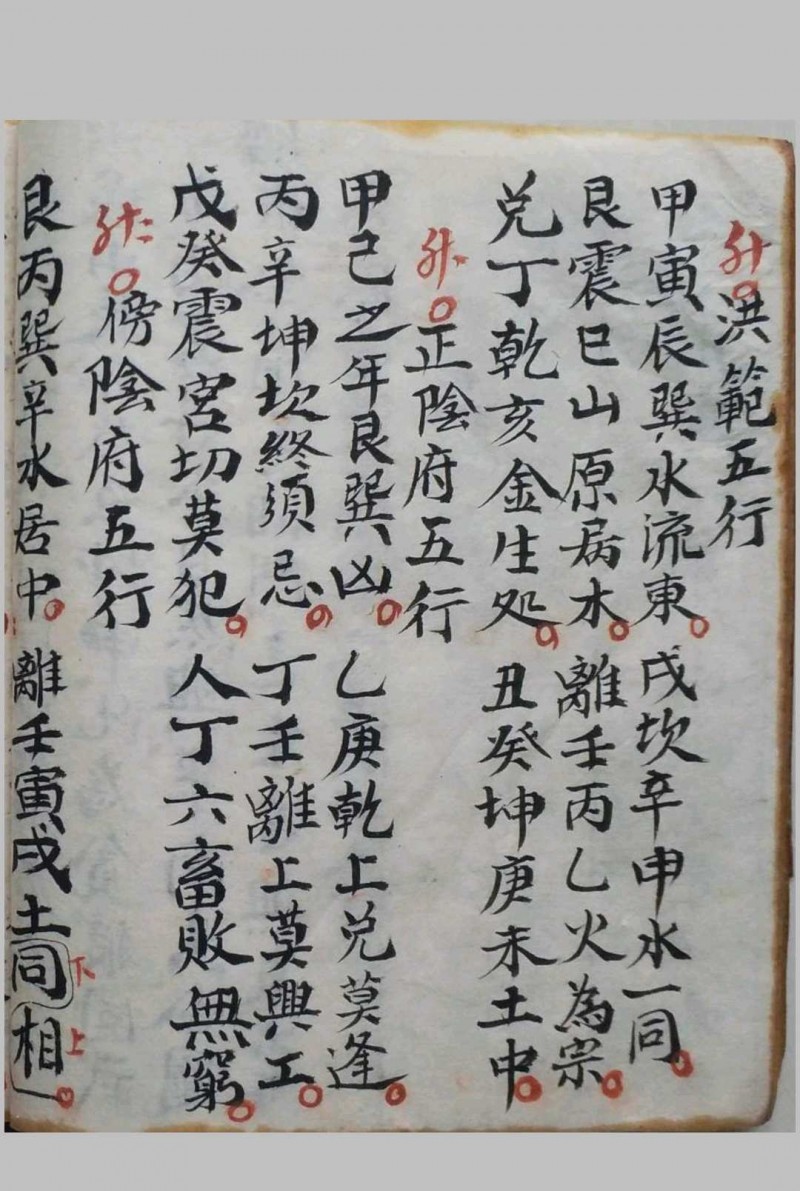 卅洪範五行
甲寅辰巽水流東 戌坎辛申水一同
艮震巳山原属木 離壬丙乙火為宗
兌丁乾亥金生処 丑癸坤庚未土中
卅一正陰府五行
甲己之年艮巽凶 乙庚乾上兌莫逢
丙辛坤坎終須忌 丁壬離上莫興工
戊癸震宮切莫犯 人丁六畜敗無窮
卅二傍陰府五行
艮丙巽辛水居中 離壬寅戌土同相
下
上